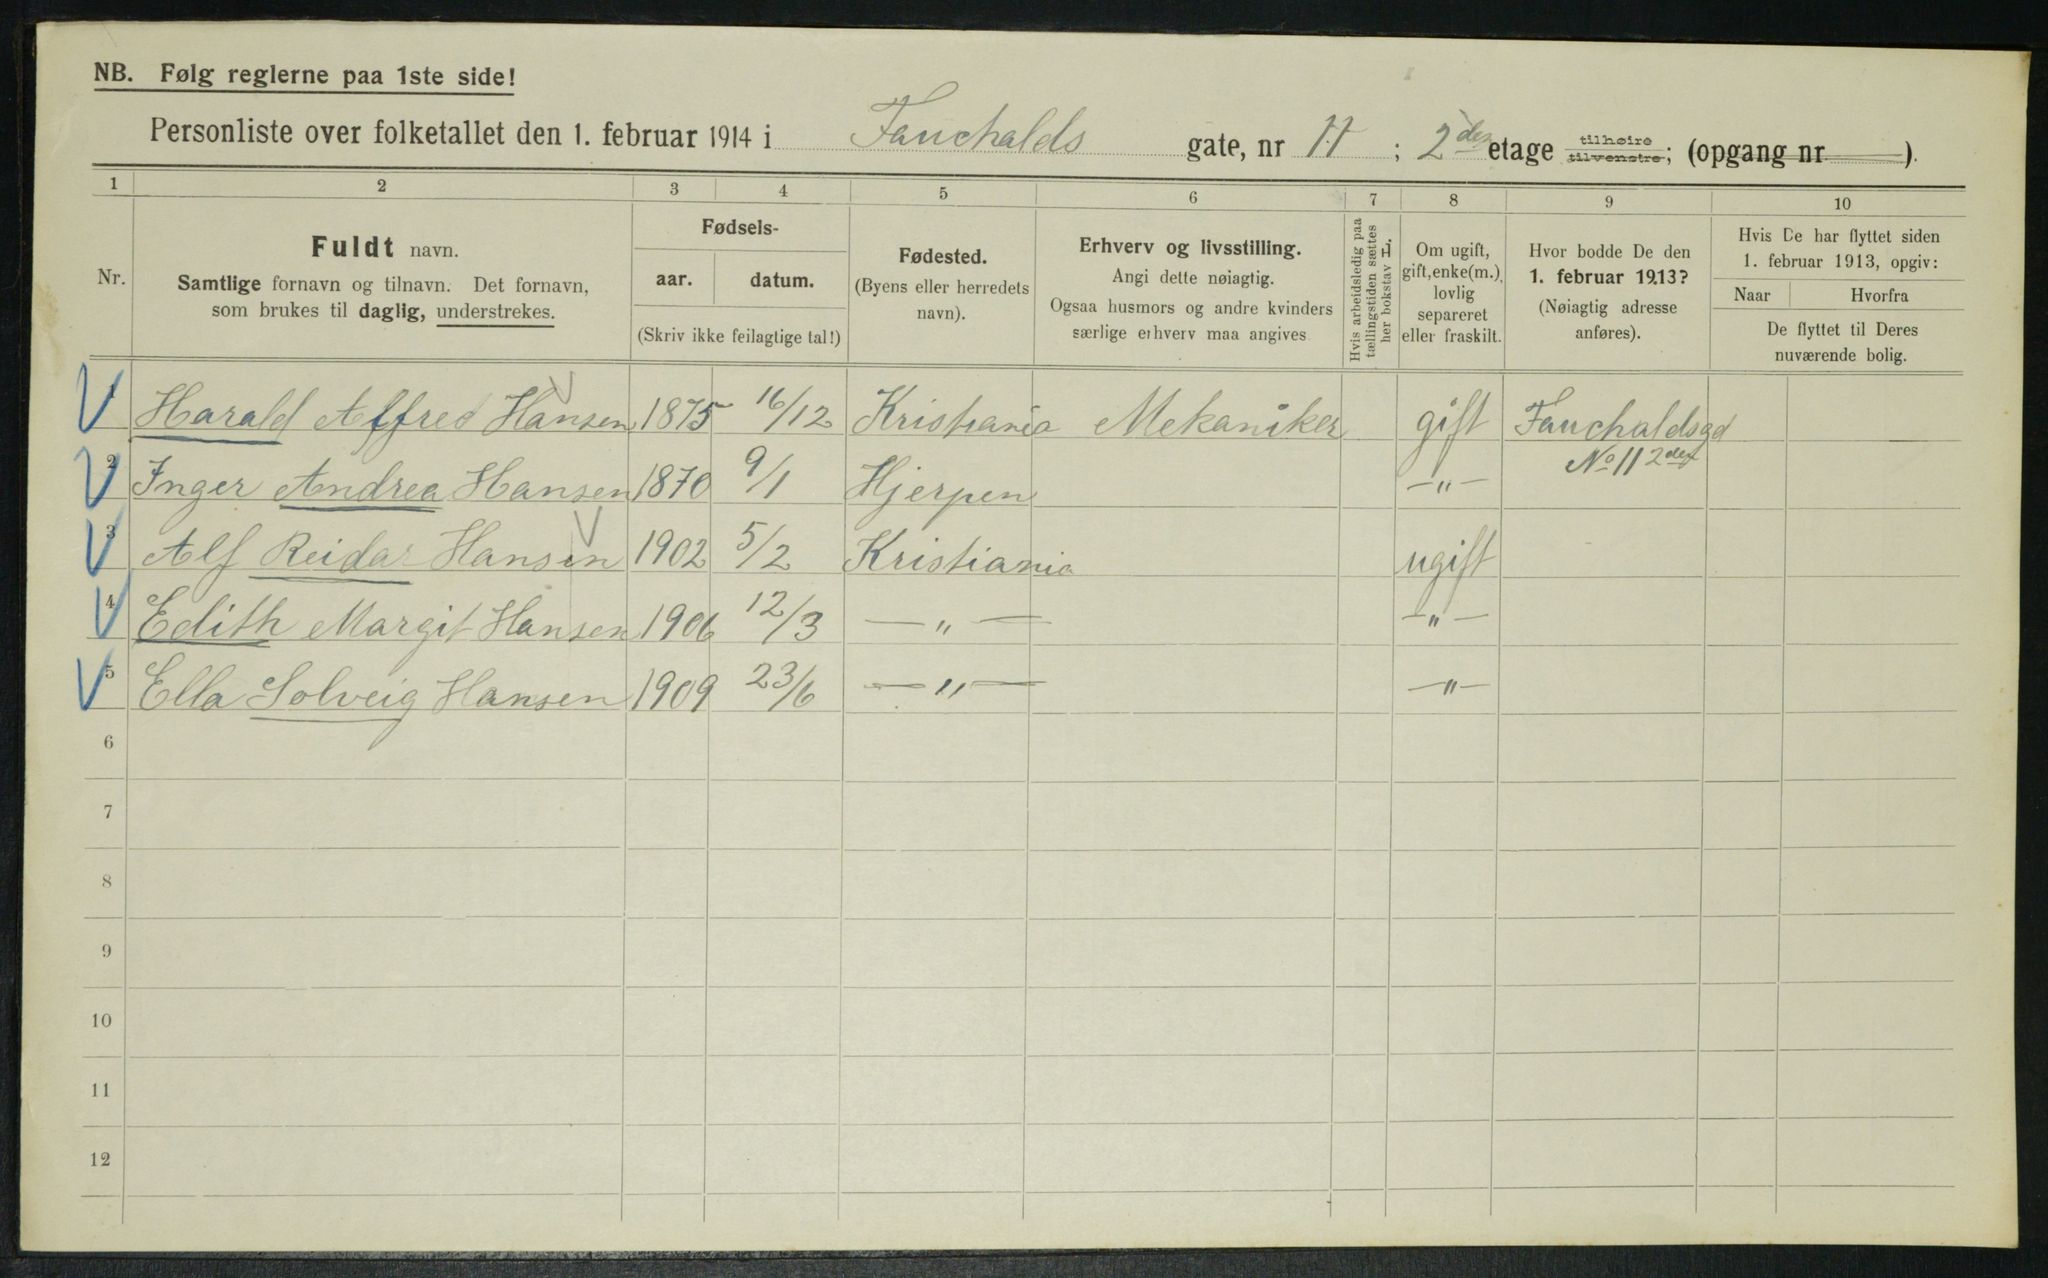 NB. Følg reglerne paa 1ste side!
Personliste over folketallet den 1. februar 1914 i Fauchalds gate, nr 11 ; 2den etage tilhøire tilvenstre; (opgang nr ).
1 2 3 4 5 6 7 8 9 10
Nr.
Fuldt navn.
Samtlige fornavn og tilnavn. Det fornavn,
som brukes til daglig, understrekes.
Fødsels-
aar. datum.
(Skriv ikke feilagtige tal!)
Fødested.
(Byens eller herredets
navn).
Erhverv og livsstilling.
Angi dette nøiagtig.
Ogsaa husmors og andre kvinders
særlige erhverv maa angives
Hvis arbeidsledig paa
tællingstiden sættes
her bokstav L.
Om ugift,
gift, enke(m.),
lovlig
separeret
eller fraskilt.
Hvor bodde De den
1. februar 1913?
(Nøiagtig adresse
anføres).
Hvis De har flyttet siden
1. februar 1913, opgiv:
Naar Hvorfra
De flyttet til Deres
nuværende bolig.
1 Harald Alfred Hansen 1875 16/12 Kristiania Mekaniker gift Fauchaldsgd
No 11 2den
2 Inger Andrea Hansen 1870 9/1 Hjerpen —"—
3 Alf Reidar Hansen 1902 5/2 Kristiania ugift
4 Edith Margit Hansen 1906 12/3 —"— —"—
5 Ella Solveig Hansen 1909 23/6 —"— —"—
6
7
8
9
10
11
12